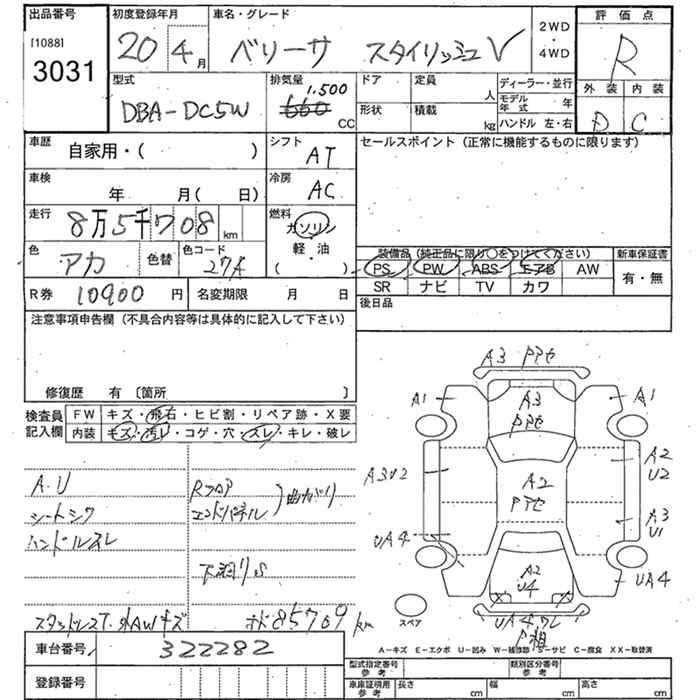 出品番号 初度登録年月 車名・グレード 2WD・4WD 評価点
[1088] 3031
20 年 4月 ベリーサ スタイリッシュV R
型式 排気量 ドア 定員 人 ディーラー・並行 外装 内装
DBA-DC5W 1.500 660 CC 形状 積載 kg モデル年式 年 D C
ハンドル 左・右
車歴 自家用・( ) シフト AT セールスポイント (正常に機能するものに限ります)
車検 年 月( 日) 冷房 AC
走行 8万5千708 km 燃料 ガソリン 軽・油 ( )
色 アカ 色替 色コード 27A
装備品 (純正品に限り○をつけてください) 新車保証書
PS PW ABS エアB AW 有・無
SR ナビ TV カワ
R券 10900 円 名変期限 月 日 後日品
注意事項申告欄 (不具合内容等は具体的に記入して下さい)
修復歴 有 〔箇所 〕
検査員記入欄 FW キズ・飛石・ヒビ割・リペア跡・X要
内装 キズ・汚レ・コゲ・穴・スレ・キレ・破レ
A.U
シートシワ
ハンドルスレ
Rフロア
エンドパネル 曲がり
下廻りS
スタットレスT.
キズ
85709 km
A3 PTセ
A1 A3 PTセ A1
A3U2 A2 PTセ A2 U2
A3 U1
UA4 A2 U4 UA4
UA4
スペア
車台番号 322282
A-キズ E-エクボ U-凹み W-補修跡 S-サビ C-腐食 XX-取替済
登録番号
型式指定番号 参考 類別区分番号 参考
車庫証明用 参考 長さ cm 幅 cm 高さ cm